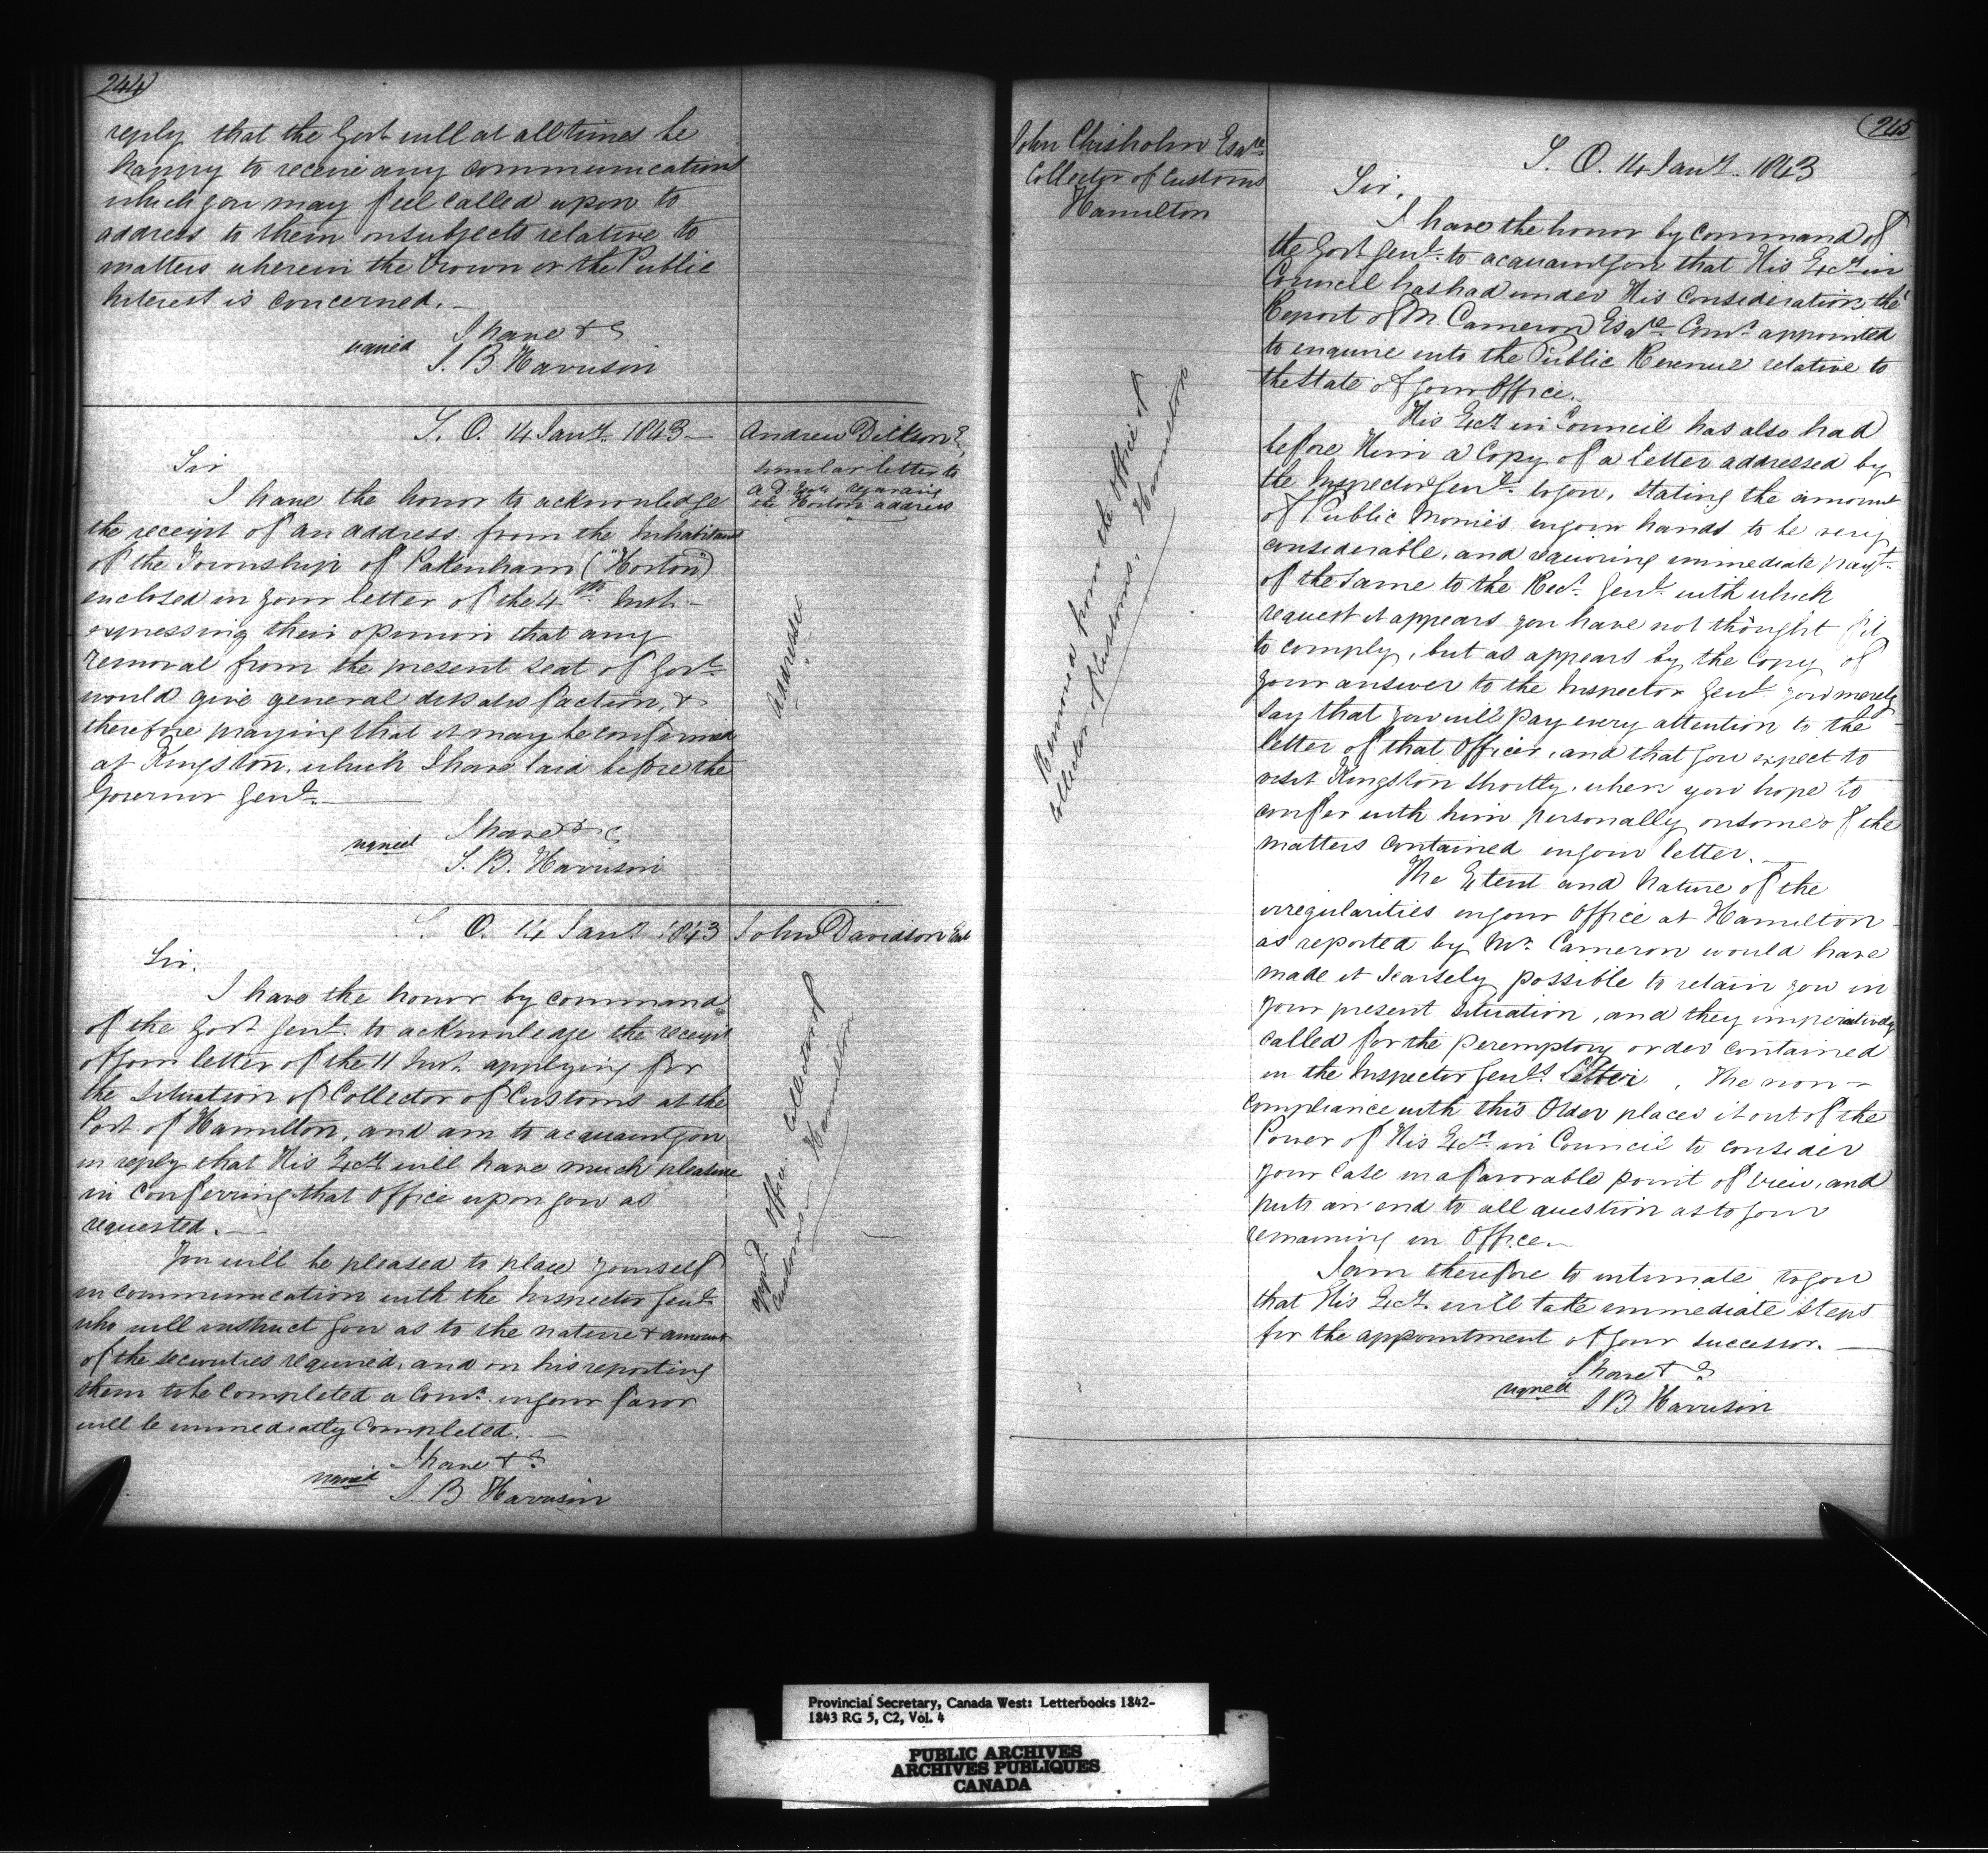 244
reply that the Govt will at all times be
happy to receive any communications
which you may feel called upon to
address to them on subjects relative to
matters wherein the Crown or the Public
Interest is concerned.
I have &c
signed S. B Harrison
S. O. 14 Jany. 1843
Andrew Dickson E
similar letter to
A D regarding
the Horton address
Address
Sir
I have the honor to acknowledge
the receipt of an address from the Inhabitants
of the Township of Pakenham ("Horton")
enclosed in your letter of the 4th Inst.
expressing their opinion that any
removal from the present seat of Govt
would give general dissatisfaction, &
therefore praying that it may be confirmed
at Kingston, which I have laid before the
Governor Genl.
I have &c
signed S. B. Harrison
S. O. 14 Jany 1843
John Davidson Esq
appt. office Collector of
Customs Hamilton
Sir.
I have the honor by command
of the Govr Genl. to acknowledge the receipt
of your letter of the 11 Inst. applying for
the situation of Collector of Customs at the
Port of Hamilton, and am to acquaint you
in reply that His Excy will have much pleasure
in conferring that Office upon you as
requested.
You will be pleased to place yourself
in communication with the Inspector Genl
who will instruct you as to the nature & amount
of the securities required, and on his reporting
them to be completed a Comn. in your favor
will be immediately completed.
I have &c
signed S. B Harrison
245
John Chisholm Esqre
Collector of Customs
Hamilton
Removal from the office of
Collector of Customs. Hamilton
S. O. 14 Jany. 1843
Sir.
I have the honor by command of
the Govr Genl. to acquaint you that His Excy in
Council has had under His Consideration, the
Report of M Cameron Esqre Comr. appointed
to enquire into the Public Revenue relative to
the State of your Office.
His Excy in Council has also had
before Him a Copy of a letter addressed by
the Inspector Genl. to you, stating the amount
of Public Monies in your hands to be very
considerable, and requiring immediate payt.
of the same to the Recr. Genl. with which
request it appears you have not thought fit
to comply, but as appears by the Copy of
your answer to the Inspector Genl you merely
say that you will pay every attention to the
letter of that Officer, and that you expect to
visit Kingston shortly, when you hope to
confer with him personally on some of the
matters contained in your letter.
The Extent and Nature of the
irregularities in your Office at Hamilton
as reported by Mr. Cameron would have
made it scarsely possible to retain you in
your present situation, and they imperatively
called for the peremptory order contained
in the Inspector Genl's. Letter. The non-
compliance with this Order places it out of the
Power of His Excy in Council to consider
your Case in a favorable point of view, and
puts an end to all question as to your
remaining in Office.
I am therefore to intimate to you
that His Excy. will take immediate steps
for the appointment of your successor.
I have &c
signed S B Harrison
Provincial Secretary, Canada West: Letterbooks 1842-
1843 RG 5, C2, Vol. 4
PUBLIC ARCHIVES
ARCHIVES PUBLIQUES
CANADA